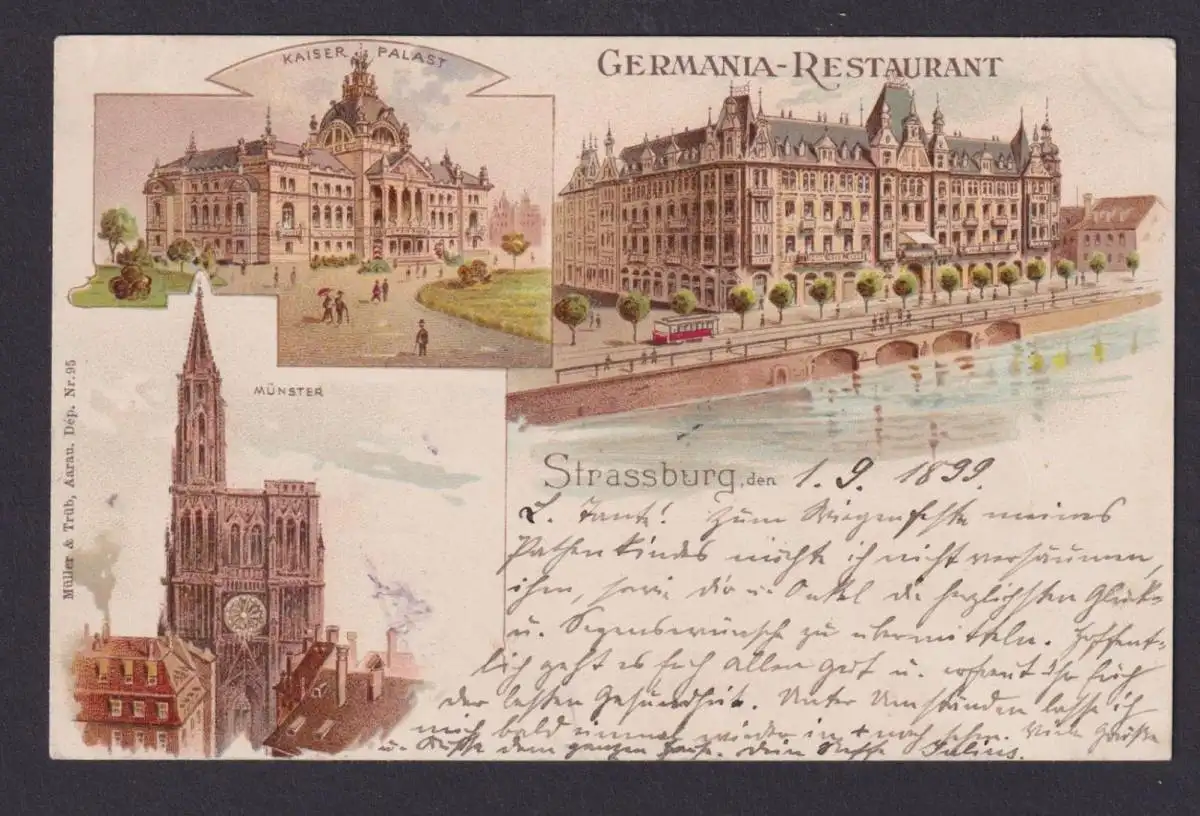 KAISER PALAST
GERMANIA-RESTAURANT
MÜNSTER
Müller & Trüb, Aarau. Dép. Nr. 95
Strassburg, den 1. 9. 1899.
L. Tante! Zum Wiegenfeste meines
Pathenkindes möchte ich nicht versäumen,
ihm, sowie dir u. Onkel die herzlichsten Glück-
u. Segenswünsche zu übermitteln. Hoffent-
lich geht es Euch Allen gut u. erfreut Ihr Euch
der besten Gesundheit. Unter Umständen lasse ich
mich bald wieder in nach sehn. Viele Grüße
u. Küsse dem ganzen Hause. Dein Neffe Julius.